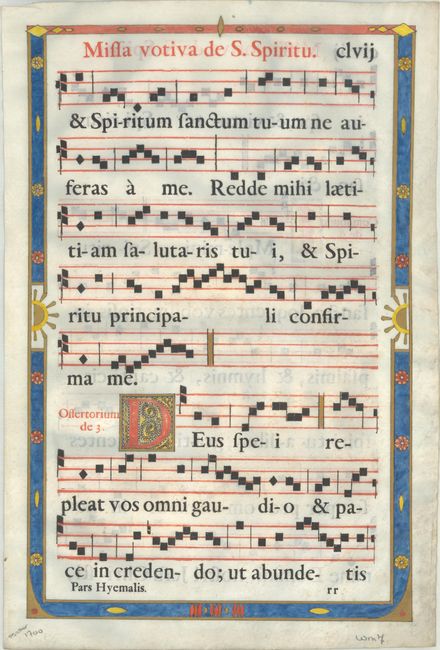 Miſſa votiva de S. Spiritu. clvij
& Spi-ritum ſanctum tu-um ne au-
feras à me. Redde mihi læti-
ti-am ſa-luta-ris tu- i, & Spi-
ritu principa- li confir-
ma me.
Offertorium
de 3.
DEus ſpe- i re-
pleat vos omni gau- di-o & pa-
ce in creden- do; ut abunde- tis
Pars Hyemalis. rr
1700